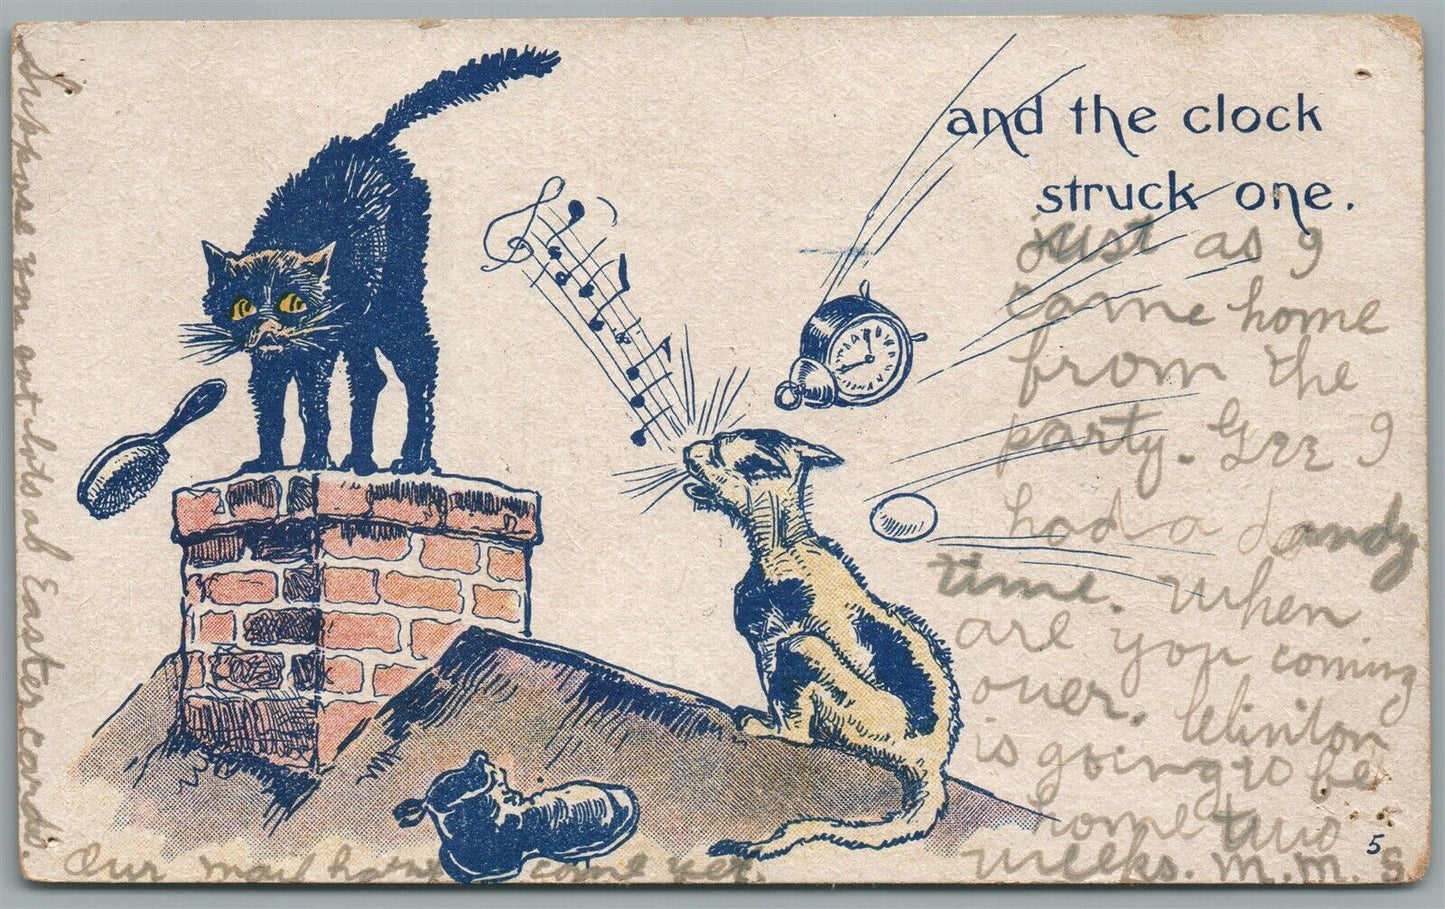 and the clock
struck one.
just as I
came home
from the
party. Gee I
had a dandy
time. When
are you coming
over. Clinton
is going to be
home two
weeks. M. M. S
5
Our mail hasn't come yet.
Suppose you got lots of Easter cards.